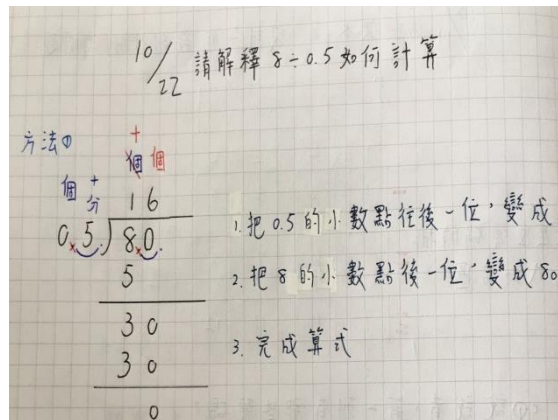 10/22 請解釋8÷0.5如何計算
方法①
十
個 個
個 十分
16
0.5.)8.0.
5
30
30
0
1.把0.5的小數點往後一位,變成
2.把8的小數點後一位,變成80
3.完成算式